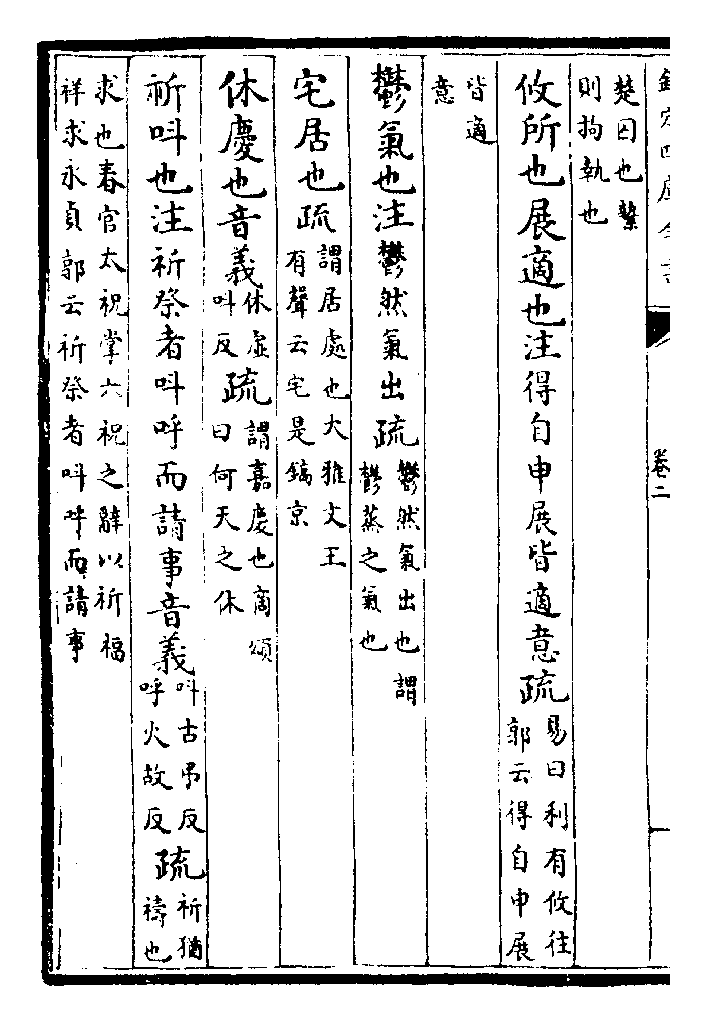 欽定四庫全書
卷二
楚囚也縶
則拘執也
攸所也展適也注得自申展皆適意疏易曰利有攸往
郭云得自申展
皆適
意
鬱氣也注鬱然氣出疏鬱然氣出也謂
鬱蒸之氣也
宅居也疏謂居處也大雅文王
有聲云宅是鎬京
休慶也音義休虛
叫反疏謂嘉慶也商頌
曰何天之休
祈叫也注祈祭者叫呼而請事音義叫古弔反
呼火故反疏祈猶
禱也
求也春官太祝掌六祝之辭以祈福
祥求永貞郭云祈祭者叫呼而請事